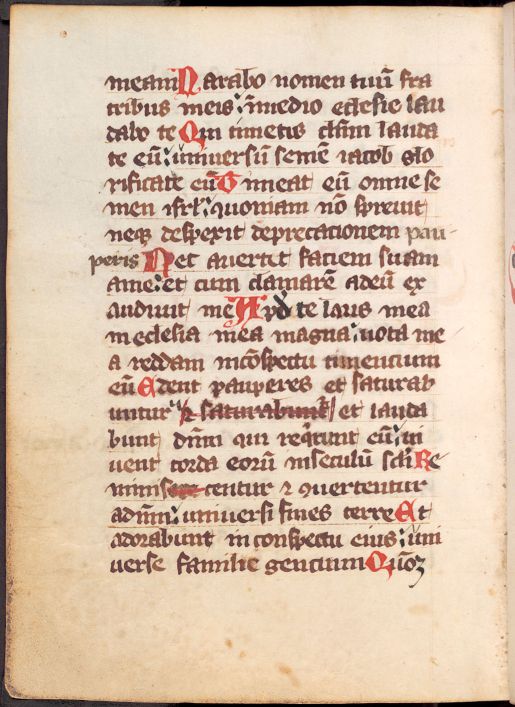 meam Narabo nomen tuū fra
tribus meis: īmedio eclesie lau
dabo te Qui timetis dn̄m lauda
te eū: universū semē iacob glo
rificate eū Timeat eū omne se
men isrl̄: quoniam nō sprevit
neqꝫ despexit deprecationem pau-
peris Nec avertit faciem suam
ame: et cum clamarē adeū ex
audivit me Apꝺ te laus mea
in eclesia mea magna: vota me
a reddam īcōspectu timencium
eū Edent pauperes et saturab
untur: ⁊ saturabunt̄ et lauda
bunt dn̄m qui reqͥrunt eū: vi
vent corda eorū inseculū scl̄i Re
minis centur ⁊ ꝯvertentur
adn̄m: universi fines terre Et
adorabunt in conspectu eius: uni
verse familie gencium Qn̄oꝫ